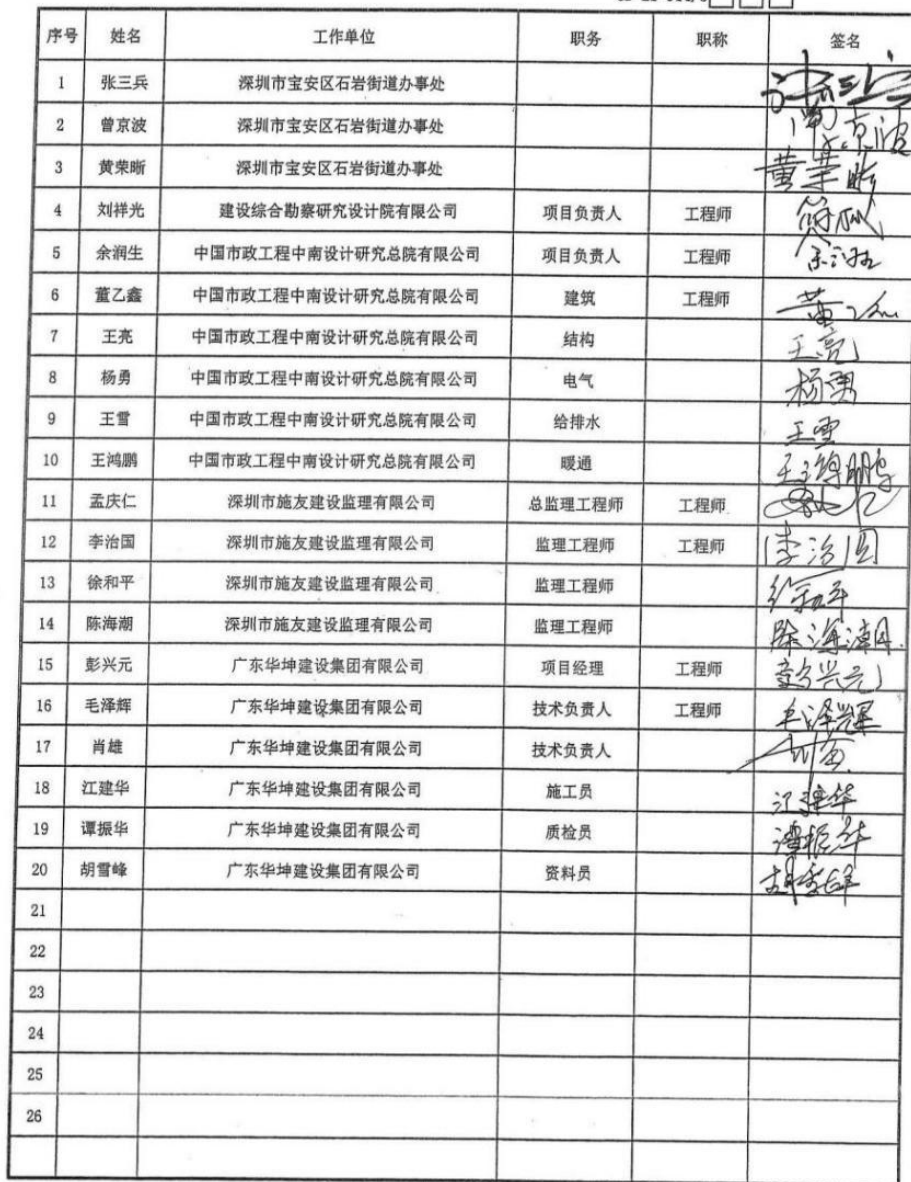 序号 姓名 工作单位 职务 职称 签名
1 张三兵 深圳市宝安区石岩街道办事处
2 曾京波 深圳市宝安区石岩街道办事处 曾京波
3 黄荣晰 深圳市宝安区石岩街道办事处 黄荣晰
4 刘祥光 建设综合勘察研究设计院有限公司 项目负责人 工程师
5 余润生 中国市政工程中南设计研究总院有限公司 项目负责人 工程师
6 董乙鑫 中国市政工程中南设计研究总院有限公司 建筑 工程师
7 王亮 中国市政工程中南设计研究总院有限公司 结构 王亮
8 杨勇 中国市政工程中南设计研究总院有限公司 电气 杨勇
9 王雪 中国市政工程中南设计研究总院有限公司 给排水 王雪
10 王鸿鹏 中国市政工程中南设计研究总院有限公司 暖通 王鸿鹏
11 孟庆仁 深圳市施友建设监理有限公司 总监理工程师 工程师
12 李治国 深圳市施友建设监理有限公司 监理工程师 工程师 李治国
13 徐和平 深圳市施友建设监理有限公司 监理工程师 徐和平
14 陈海潮 深圳市施友建设监理有限公司 监理工程师 陈海潮
15 彭兴元 广东华坤建设集团有限公司 项目经理 工程师 彭兴元
16 毛泽辉 广东华坤建设集团有限公司 技术负责人 工程师 毛泽辉
17 肖雄 广东华坤建设集团有限公司 技术负责人
18 江建华 广东华坤建设集团有限公司 施工员 江建华
19 谭振华 广东华坤建设集团有限公司 质检员 谭振华
20 胡雪峰 广东华坤建设集团有限公司 资料员 胡雪峰
21
22
23
24
25
26